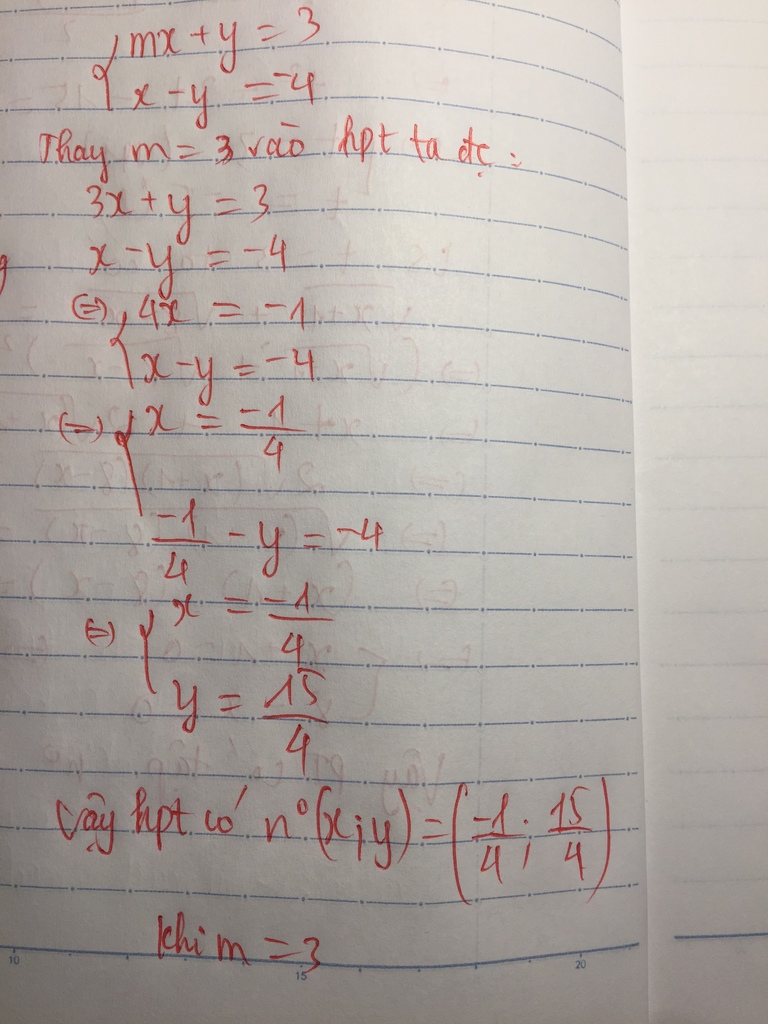 mx + y = 3
x - y = -4
Thay m = 3 vào hpt ta đc :
3x + y = 3
x - y = -4
(=) 4x = -1
x - y = -4
(=) x = -1/4
-1/4 - y = -4
(=) x = -1/4
y = 15/4
Vậy hpt có n° (x;y) = (-1/4; 15/4)
khi m = 3
10 15 20